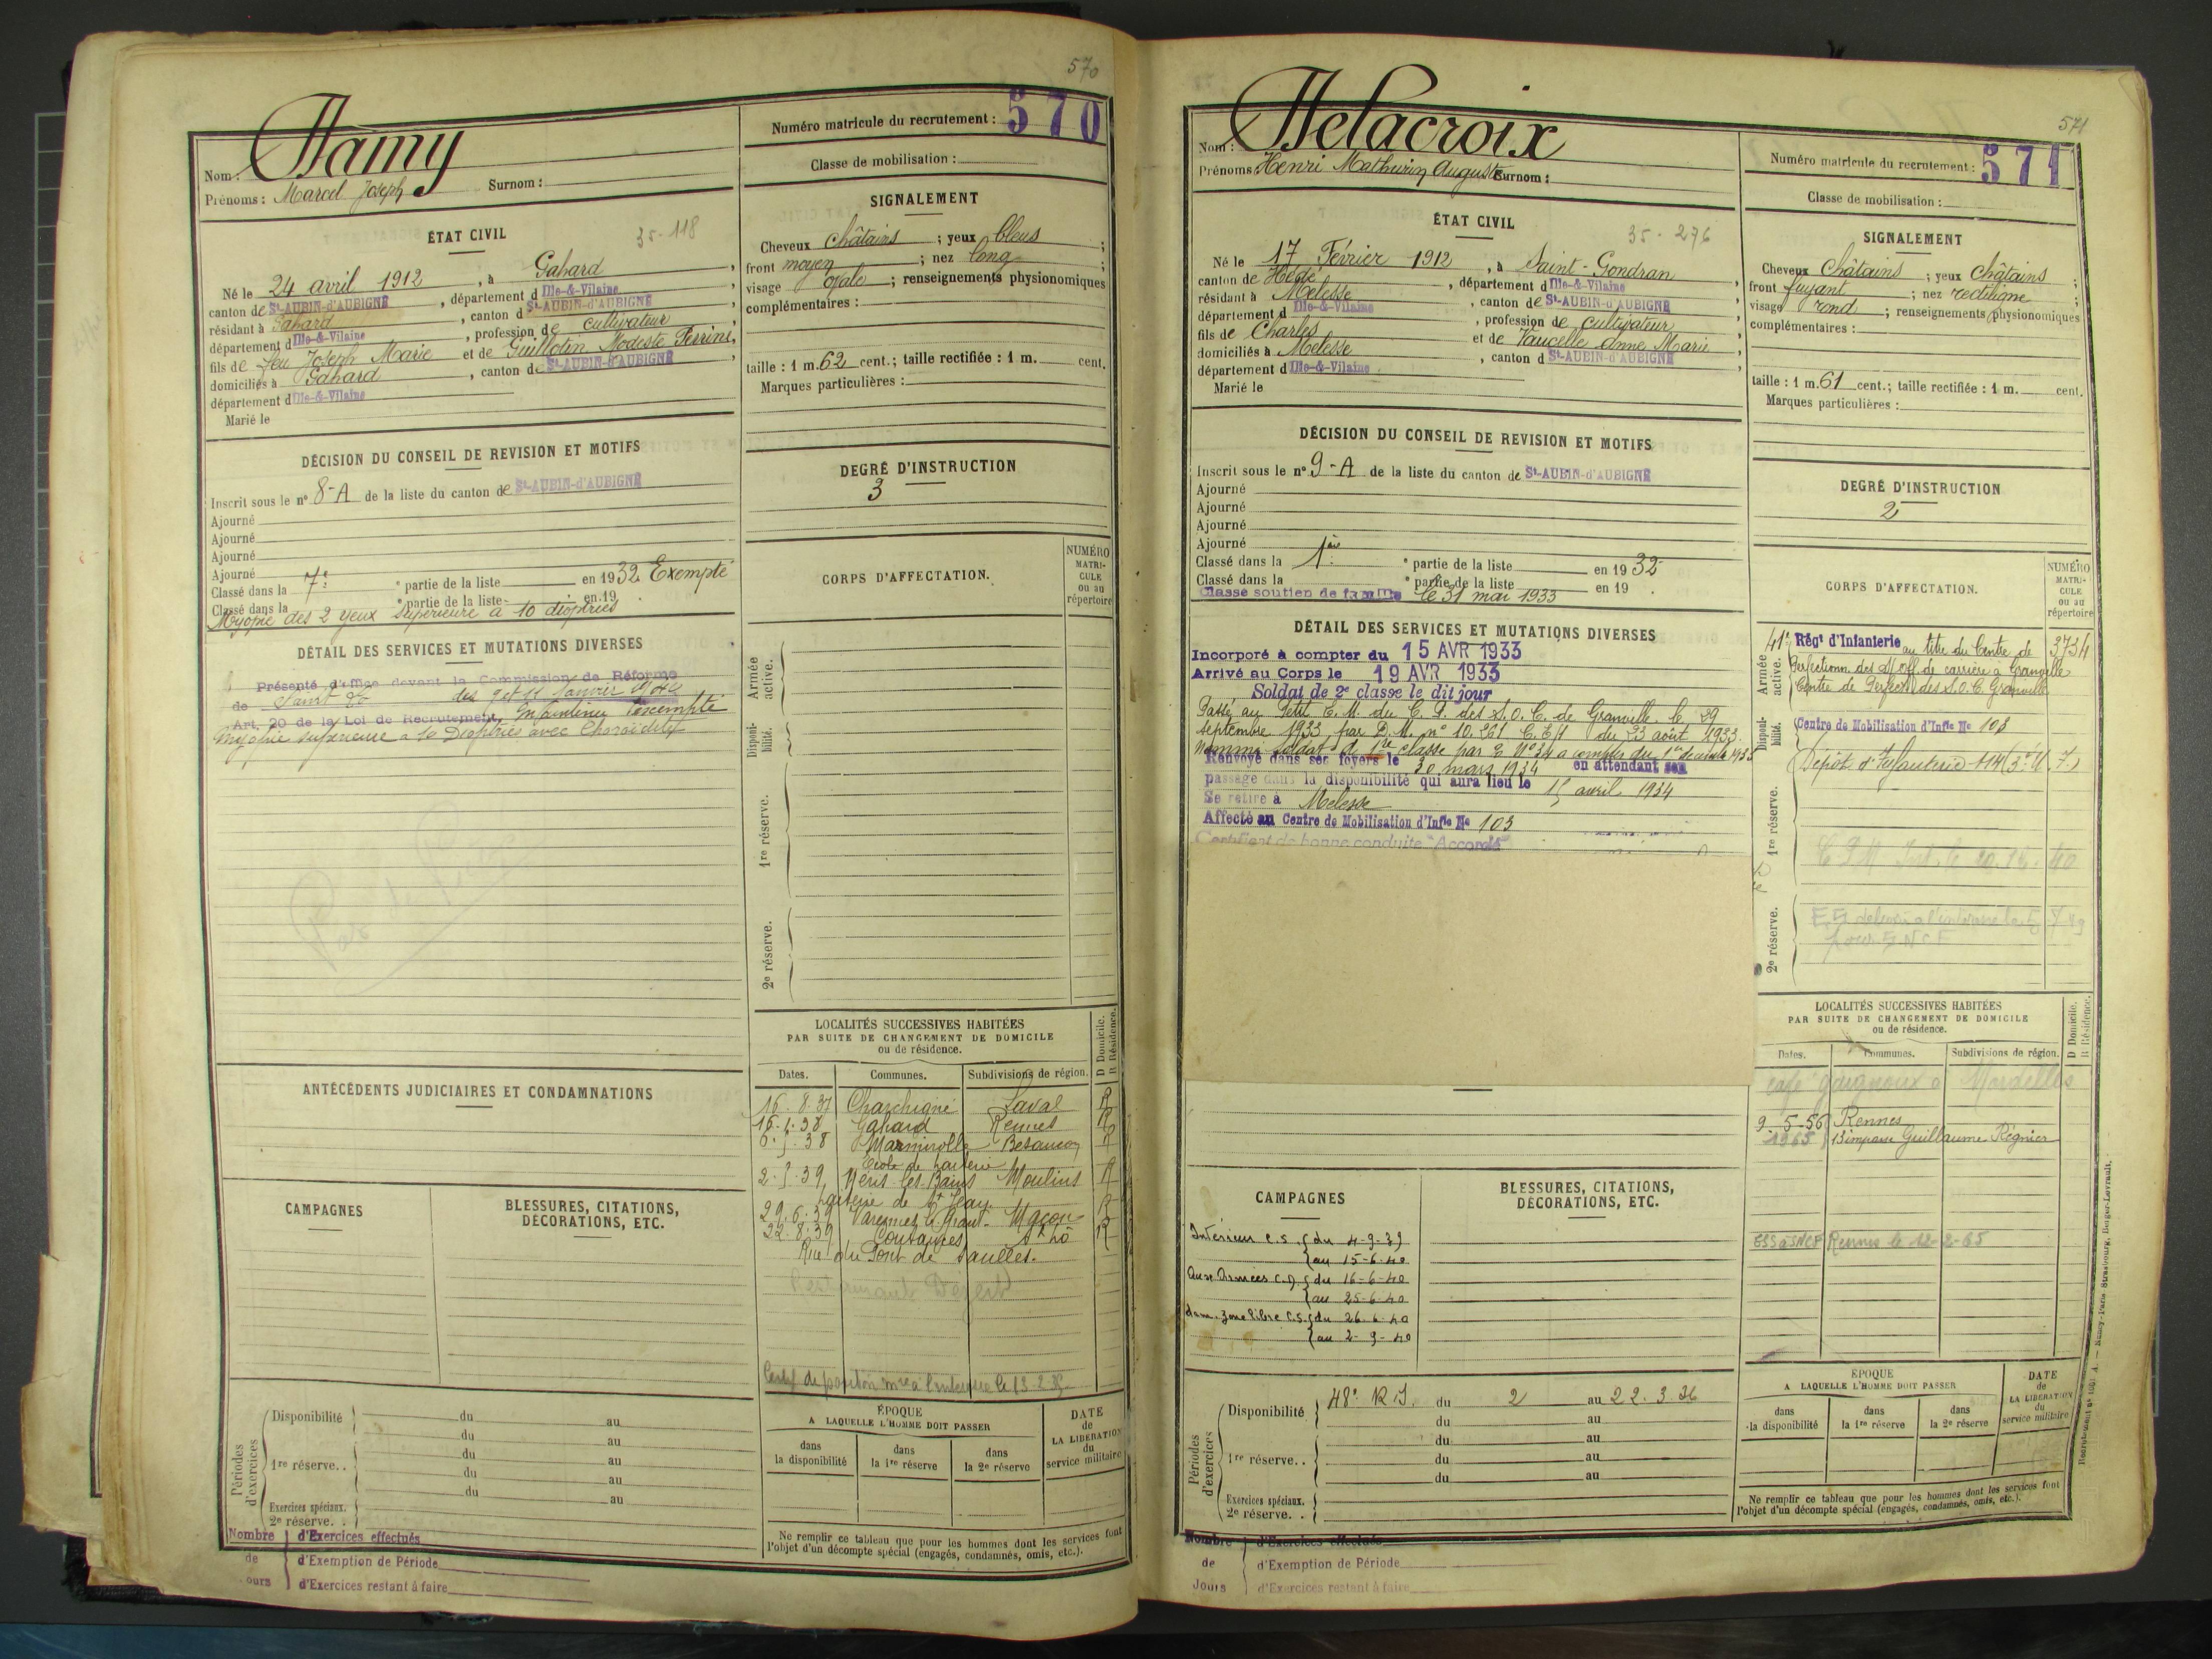 570
Nom : Damy
Prénoms : Marcel Joseph Surnom :
Numéro matricule du recrutement : 570
Classe de mobilisation :
ÉTAT CIVIL
35-118
Né le 24 avril 1912, à Gahard,
canton de St-AUBIN-d'AUBIGNÉ, département d Ille-&-Vilaine,
résidant à Gahard, canton d St-AUBIN-d'AUBIGNÉ,
département d Ille-&-Vilaine, profession de cultivateur,
fils de feu Joseph Marie et de Guillotin Modeste Perrine,
domiciliés à Gahard, canton de St-AUBIN-d'AUBIGNÉ,
département d Ille-&-Vilaine
Marié le
SIGNALEMENT
Cheveux châtains ; yeux bleus ;
front moyen ; nez long ;
visage ovale ; renseignements physionomiques
complémentaires :
taille : 1 m. 62 cent.; taille rectifiée : 1 m. cent.
Marques particulières :
DÉCISION DU CONSEIL DE REVISION ET MOTIFS
Inscrit sous le n° 8-A de la liste du canton de St-AUBIN-d'AUBIGNÉ
Ajourné
Ajourné
Ajourné
Ajourné
Classé dans la 7e partie de la liste en 1932 Exempté
Classé dans la partie de la liste en 19
Myopie des 2 yeux supérieure à 10 dioptries
DEGRÉ D'INSTRUCTION
3
CORPS D'AFFECTATION.
NUMÉRO MATRICULE ou au répertoire
DÉTAIL DES SERVICES ET MUTATIONS DIVERSES
Présenté d'office devant la Commission de Réforme
de des 9 et 11 Janvier
Art. 20 de la Loi de Recrutement, Maintenu exempté
myopie supérieure à 10 Dioptries avec Choroïdite
Armée active.
Disponibilité.
1re réserve.
2e réserve.
Pas de
LOCALITÉS SUCCESSIVES HABITÉES
PAR SUITE DE CHANGEMENT DE DOMICILE
ou de résidence.
D Domicile.
R Résidence.
Dates. Communes. Subdivisions de région.
16.8.37 Charchigné Laval R
16.1.38 Gahard Rennes R
6.5.38 Mamirolle Besançon R
École de laiterie
2.5.39 Néris-les-Bains Moulins R
Laiterie de St Jean
29.6.39 Varennes le Grand Macon R
22.8.39 Coutances St Lô R
Rue du Pont de Saulles.
ANTÉCÉDENTS JUDICIAIRES ET CONDAMNATIONS
CAMPAGNES
BLESSURES, CITATIONS,
DÉCORATIONS, ETC.
Périodes d'exercices
Disponibilité du au
du au
1re réserve.. du au
du au
du au
Exercices spéciaux.
2e réserve. .
ÉPOQUE
A LAQUELLE L'HOMME DOIT PASSER
dans la disponibilité
dans la 1re réserve
dans la 2e réserve
DATE de LA LIBÉRATION du service militaire
Ne remplir ce tableau que pour les hommes dont les services font
l'objet d'un décompte spécial (engagés, condamnés, omis, etc.).
Nombre d'Exercices effectués
de d'Exemption de Période
ours d'Exercices restant à faire
571
Nom : Delacroix
Prénoms : Henri Mathurin Auguste Surnom :
Numéro matricule du recrutement : 571
Classe de mobilisation :
ÉTAT CIVIL
35-276
Né le 17 Février 1912, à Saint-Gondran,
canton de Hédé, département d Ille-&-Vilaine,
résidant à Melesse, canton de St-AUBIN-d'AUBIGNÉ,
département d Ille-&-Vilaine, profession de cultivateur,
fils de Charles et de Vaucelle Anne Marie,
domiciliés à Melesse, canton d St-AUBIN-d'AUBIGNÉ,
département d Ille-&-Vilaine
Marié le
SIGNALEMENT
Cheveux châtains ; yeux châtains ;
front fuyant ; nez rectiligne ;
visage rond ; renseignements physionomiques
complémentaires :
taille : 1 m. 61 cent.; taille rectifiée : 1 m. cent.
Marques particulières :
DÉCISION DU CONSEIL DE REVISION ET MOTIFS
Inscrit sous le n° 9-A de la liste du canton de St-AUBIN-d'AUBIGNÉ
Ajourné
Ajourné
Ajourné
Ajourné
Classé dans la 1ère partie de la liste en 1932
Classé dans la partie de la liste en 19
Classé soutien de famille le 31 mai 1933
DEGRÉ D'INSTRUCTION
2
CORPS D'AFFECTATION.
NUMÉRO MATRICULE ou au répertoire
DÉTAIL DES SERVICES ET MUTATIONS DIVERSES
Incorporé à compter du 15 AVR 1933
Arrivé au Corps le 19 AVR 1933
Soldat de 2e classe le dit jour
Passé au Petit E.M. du C.P. des S.O.C. de Granville le 29
septembre 1933 par D.M. n° 10.261 du 23 août 1933.
Nommé soldat de 1re classe par O. N°34 à compter du 1er décembre 1933
Renvoyé dans ses foyers le 30 mars 1934 en attendant son
passage dans la disponibilité qui aura lieu le 15 avril 1934
Se retire à Melesse
Affecté au Centre de Mobilisation d'Infie No 103
Certificat de bonne conduite "Accordé"
Armée active.
41e Régt d'Infanterie au titre du Centre de 3734
Perfectionn. des S/Off. de carrière à Granville
Centre de Perfect. des S.O.C. Granville
Disponibilité.
Centre de Mobilisation d'Infie No 103
Dépôt d'Infanterie 114
1re réserve.
2e réserve.
LOCALITÉS SUCCESSIVES HABITÉES
PAR SUITE DE CHANGEMENT DE DOMICILE
ou de résidence.
D Domicile.
R Résidence.
Dates. Communes. Subdivisions de région.
9-5-56 Rennes
1965 13 impasse Guillaume Régnier
SNCF Rennes le 12-2-65
CAMPAGNES
Intérieur c.s. du 4-9-39
au 15-6-40
Aux Armées C.D. du 16-6-40
au 25-6-40
dans zone libre C.S. du 26.6.40
au 2-9-40
BLESSURES, CITATIONS,
DÉCORATIONS, ETC.
Périodes d'exercices
Disponibilité 48e R.I. du 2 au 22.3.36
du au
1re réserve.. du au
du au
du au
Exercices spéciaux.
2e réserve. .
ÉPOQUE
A LAQUELLE L'HOMME DOIT PASSER
dans la disponibilité
dans la 1re réserve
dans la 2e réserve
DATE de LA LIBÉRATION du service militaire
Ne remplir ce tableau que pour les hommes dont les services font
l'objet d'un décompte spécial (engagés, condamnés, omis, etc.).
Nombre d'Exercices effectués
de d'Exemption de Période
Jours d'Exercices restant à faire